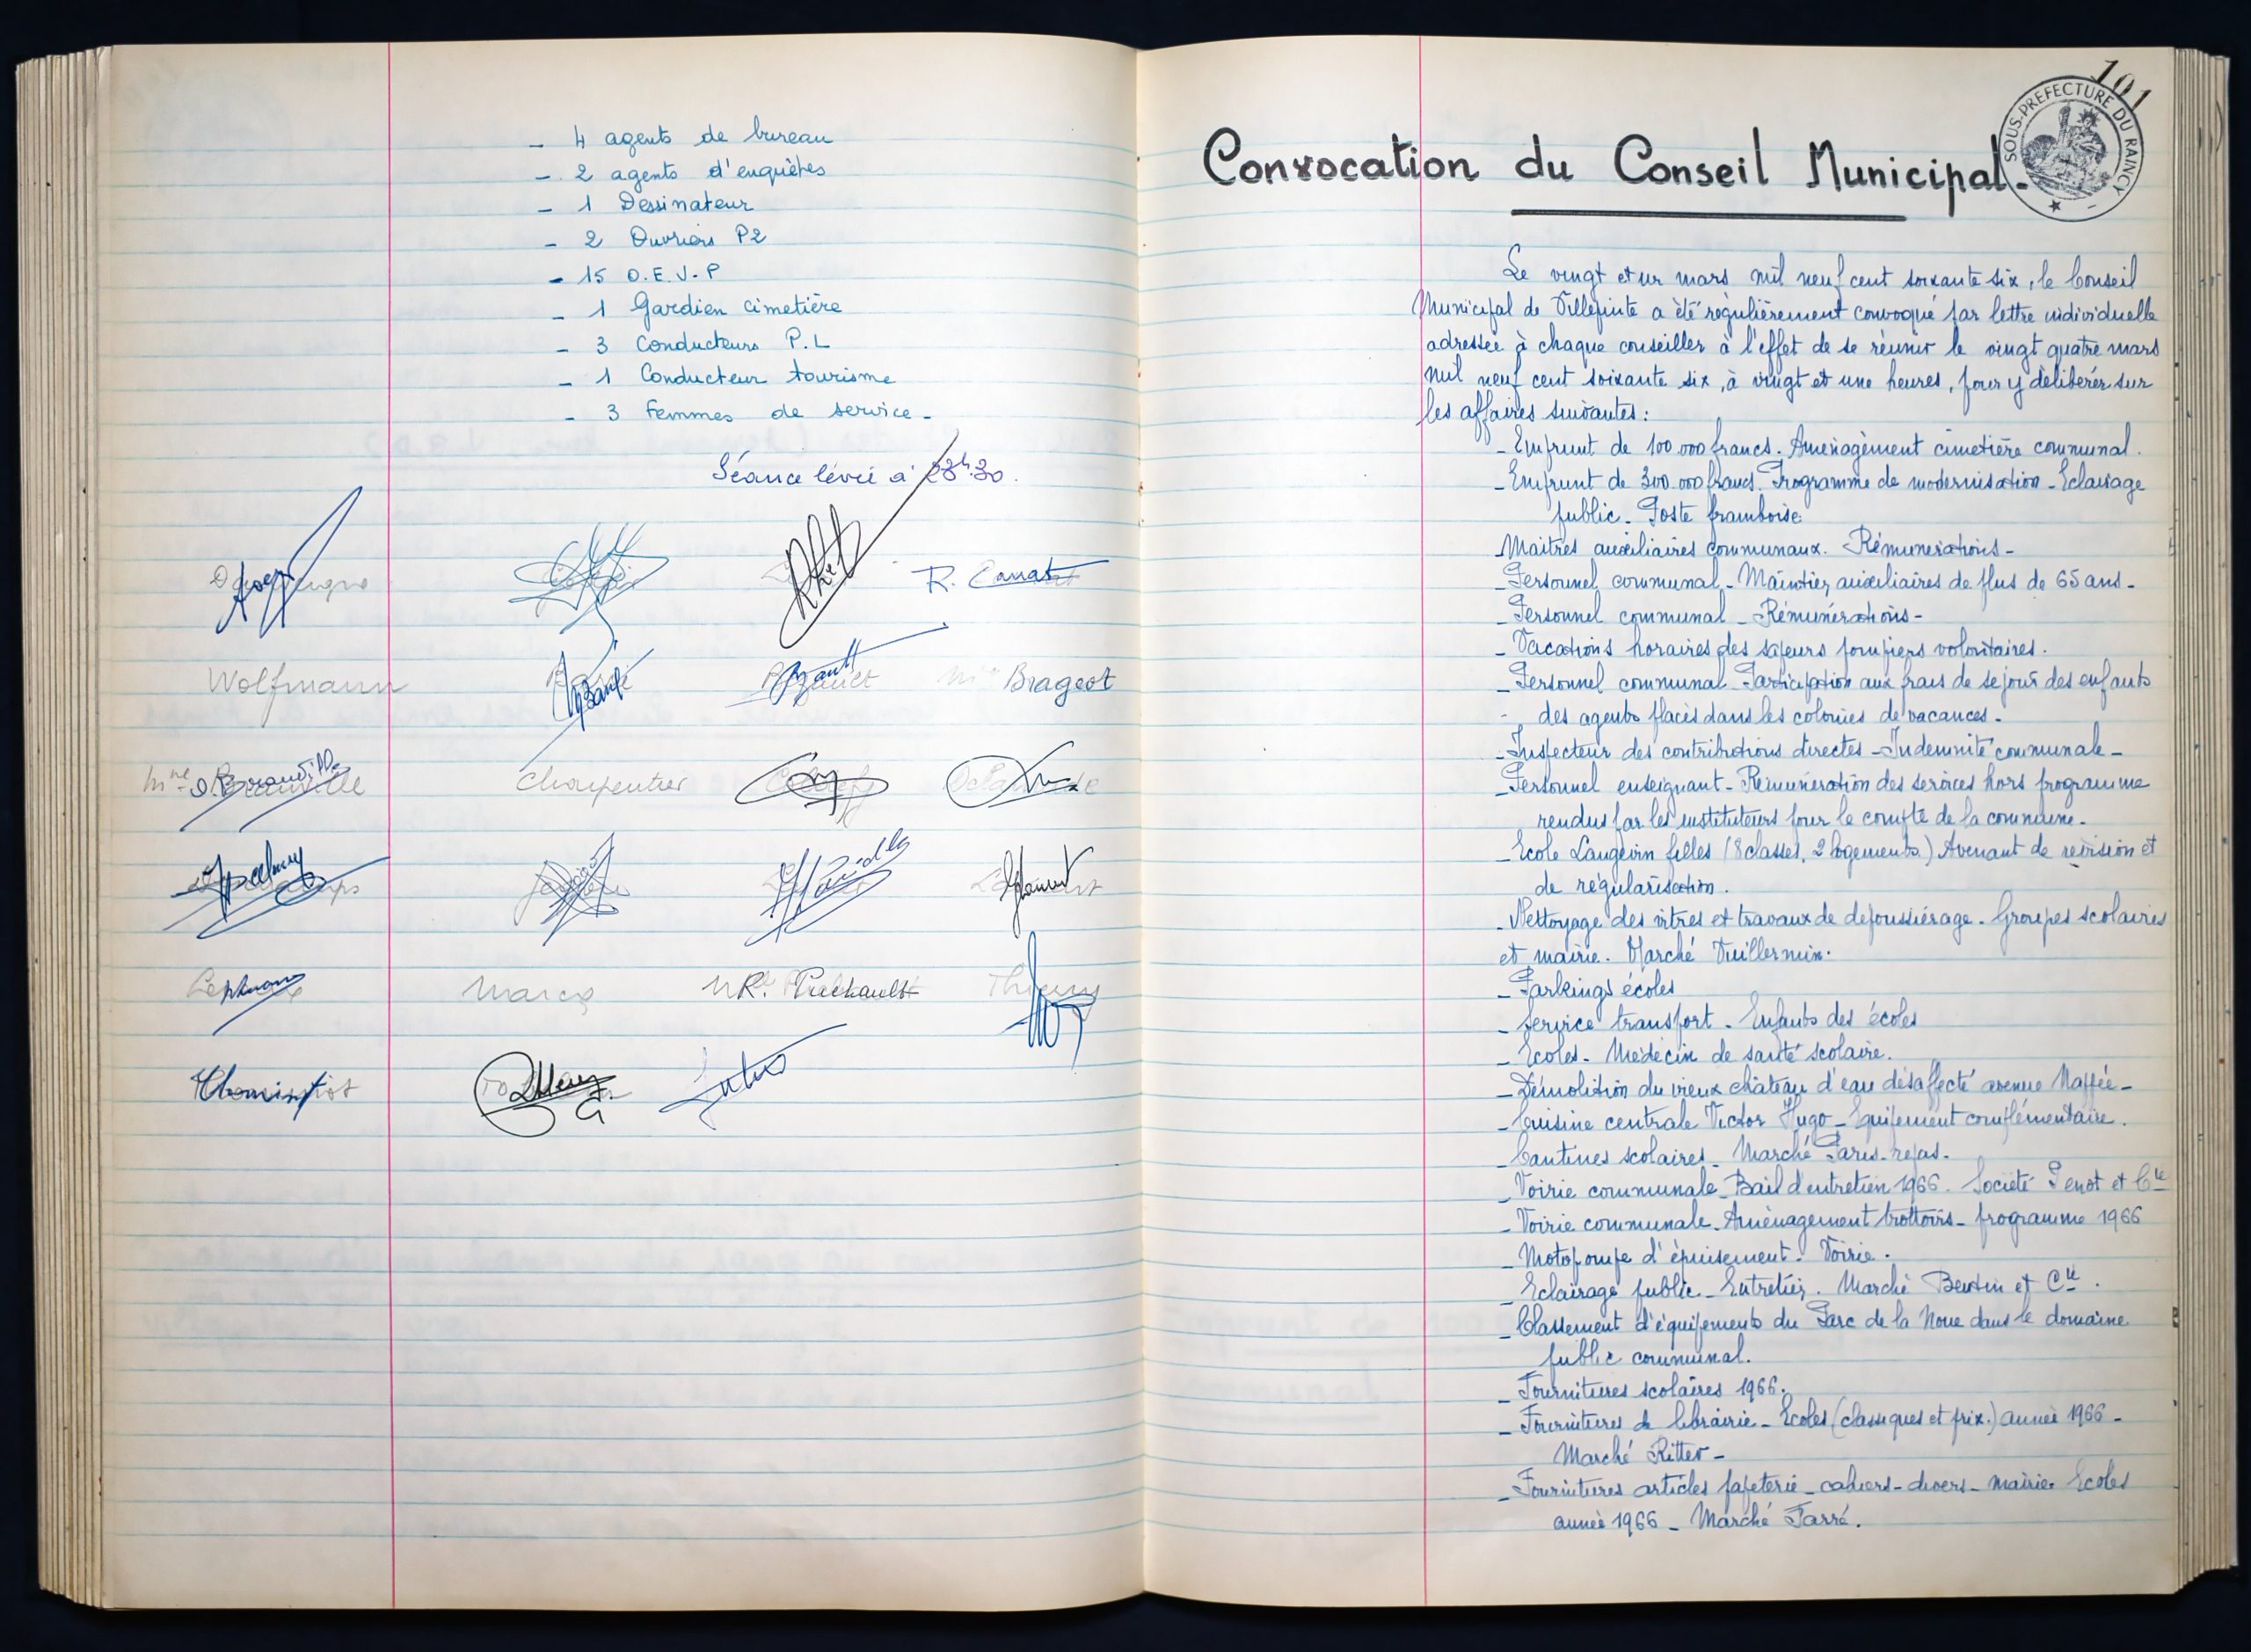 - 4 agents de bureau
- 2 agents d'enquêtes
- 1 Dessinateur
- 2 Ouvriers P2
- 15 O.E.V.P
- 1 Gardien cimetière
- 3 Conducteurs P.L
- 1 Conducteur tourisme
- 3 Femmes de service -
Séance levée à 23h.30.
R. Carrat
Wolfmann
Mme Brageot
Charpentier
Marcq
101
SOUS-PREFECTURE DU RAINCY
Convocation du Conseil Municipal.
Le vingt et un mars mil neuf cent soixante six, le Conseil
Municipal de Villepinte a été régulièrement convoqué par lettre individuelle
adressée à chaque conseiller à l'effet de se réunir le vingt quatre mars
mil neuf cent soixante six, à vingt et une heures, pour y délibérer sur
les affaires suivantes :
- Emprunt de 100 000 francs. Aménagement cimetière communal.
- Emprunt de 300.000 francs. Programme de modernisation - Eclairage
public - Poste framboise
- Maîtres auxiliaires communaux. Rémunérations -
- Personnel communal - Maintien auxiliaires de plus de 65 ans -
- Personnel communal - Rémunérations -
- Vacations horaires des sapeurs pompiers volontaires.
- Personnel communal - Participation aux frais de séjour des enfants
des agents placés dans les colonies de vacances -
- Inspecteur des contributions directes - Indemnité communale -
- Personnel enseignant - Rémunération des services hors programme
rendus par les instituteurs pour le compte de la commune -
- Ecole Langevin filles (8 classes, 2 logements) Avenant de révision et
de régularisation.
- Nettoyage des vitres et travaux de dépoussiérage - Groupes scolaires
et mairie. Marché Vuillermin.
- Parkings écoles
- Service transport - Enfants des écoles
- Ecoles - Médecin de santé scolaire.
- Démolition du vieux château d'eau désaffecté avenue Maffée -
- Cuisine centrale Victor Hugo - Equipement complémentaire.
- Cantines scolaires - Marché Paris-repas.
- Voirie communale - Bail d'entretien 1966. Société Penot et Cie
- Voirie communale - Aménagement trottoirs - programme 1966
- Motopompe d'épuisement. Voirie.
- Eclairage public - Entretien. Marché Bentin et Cie.
- Classement d'équipements du Parc de la Noue dans le domaine
public communal.
- Fournitures scolaires 1966.
- Fournitures de librairie - Ecoles (classiques et prix.) année 1966 -
Marché Ritter -
- Fournitures articles papeterie - cahiers - divers - mairie - Ecoles
année 1966 - Marché Farré.